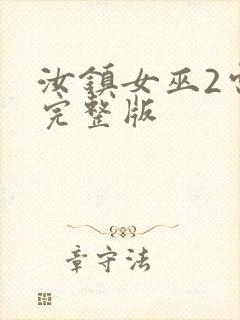 汝鎮女巫2
完整版
章守法